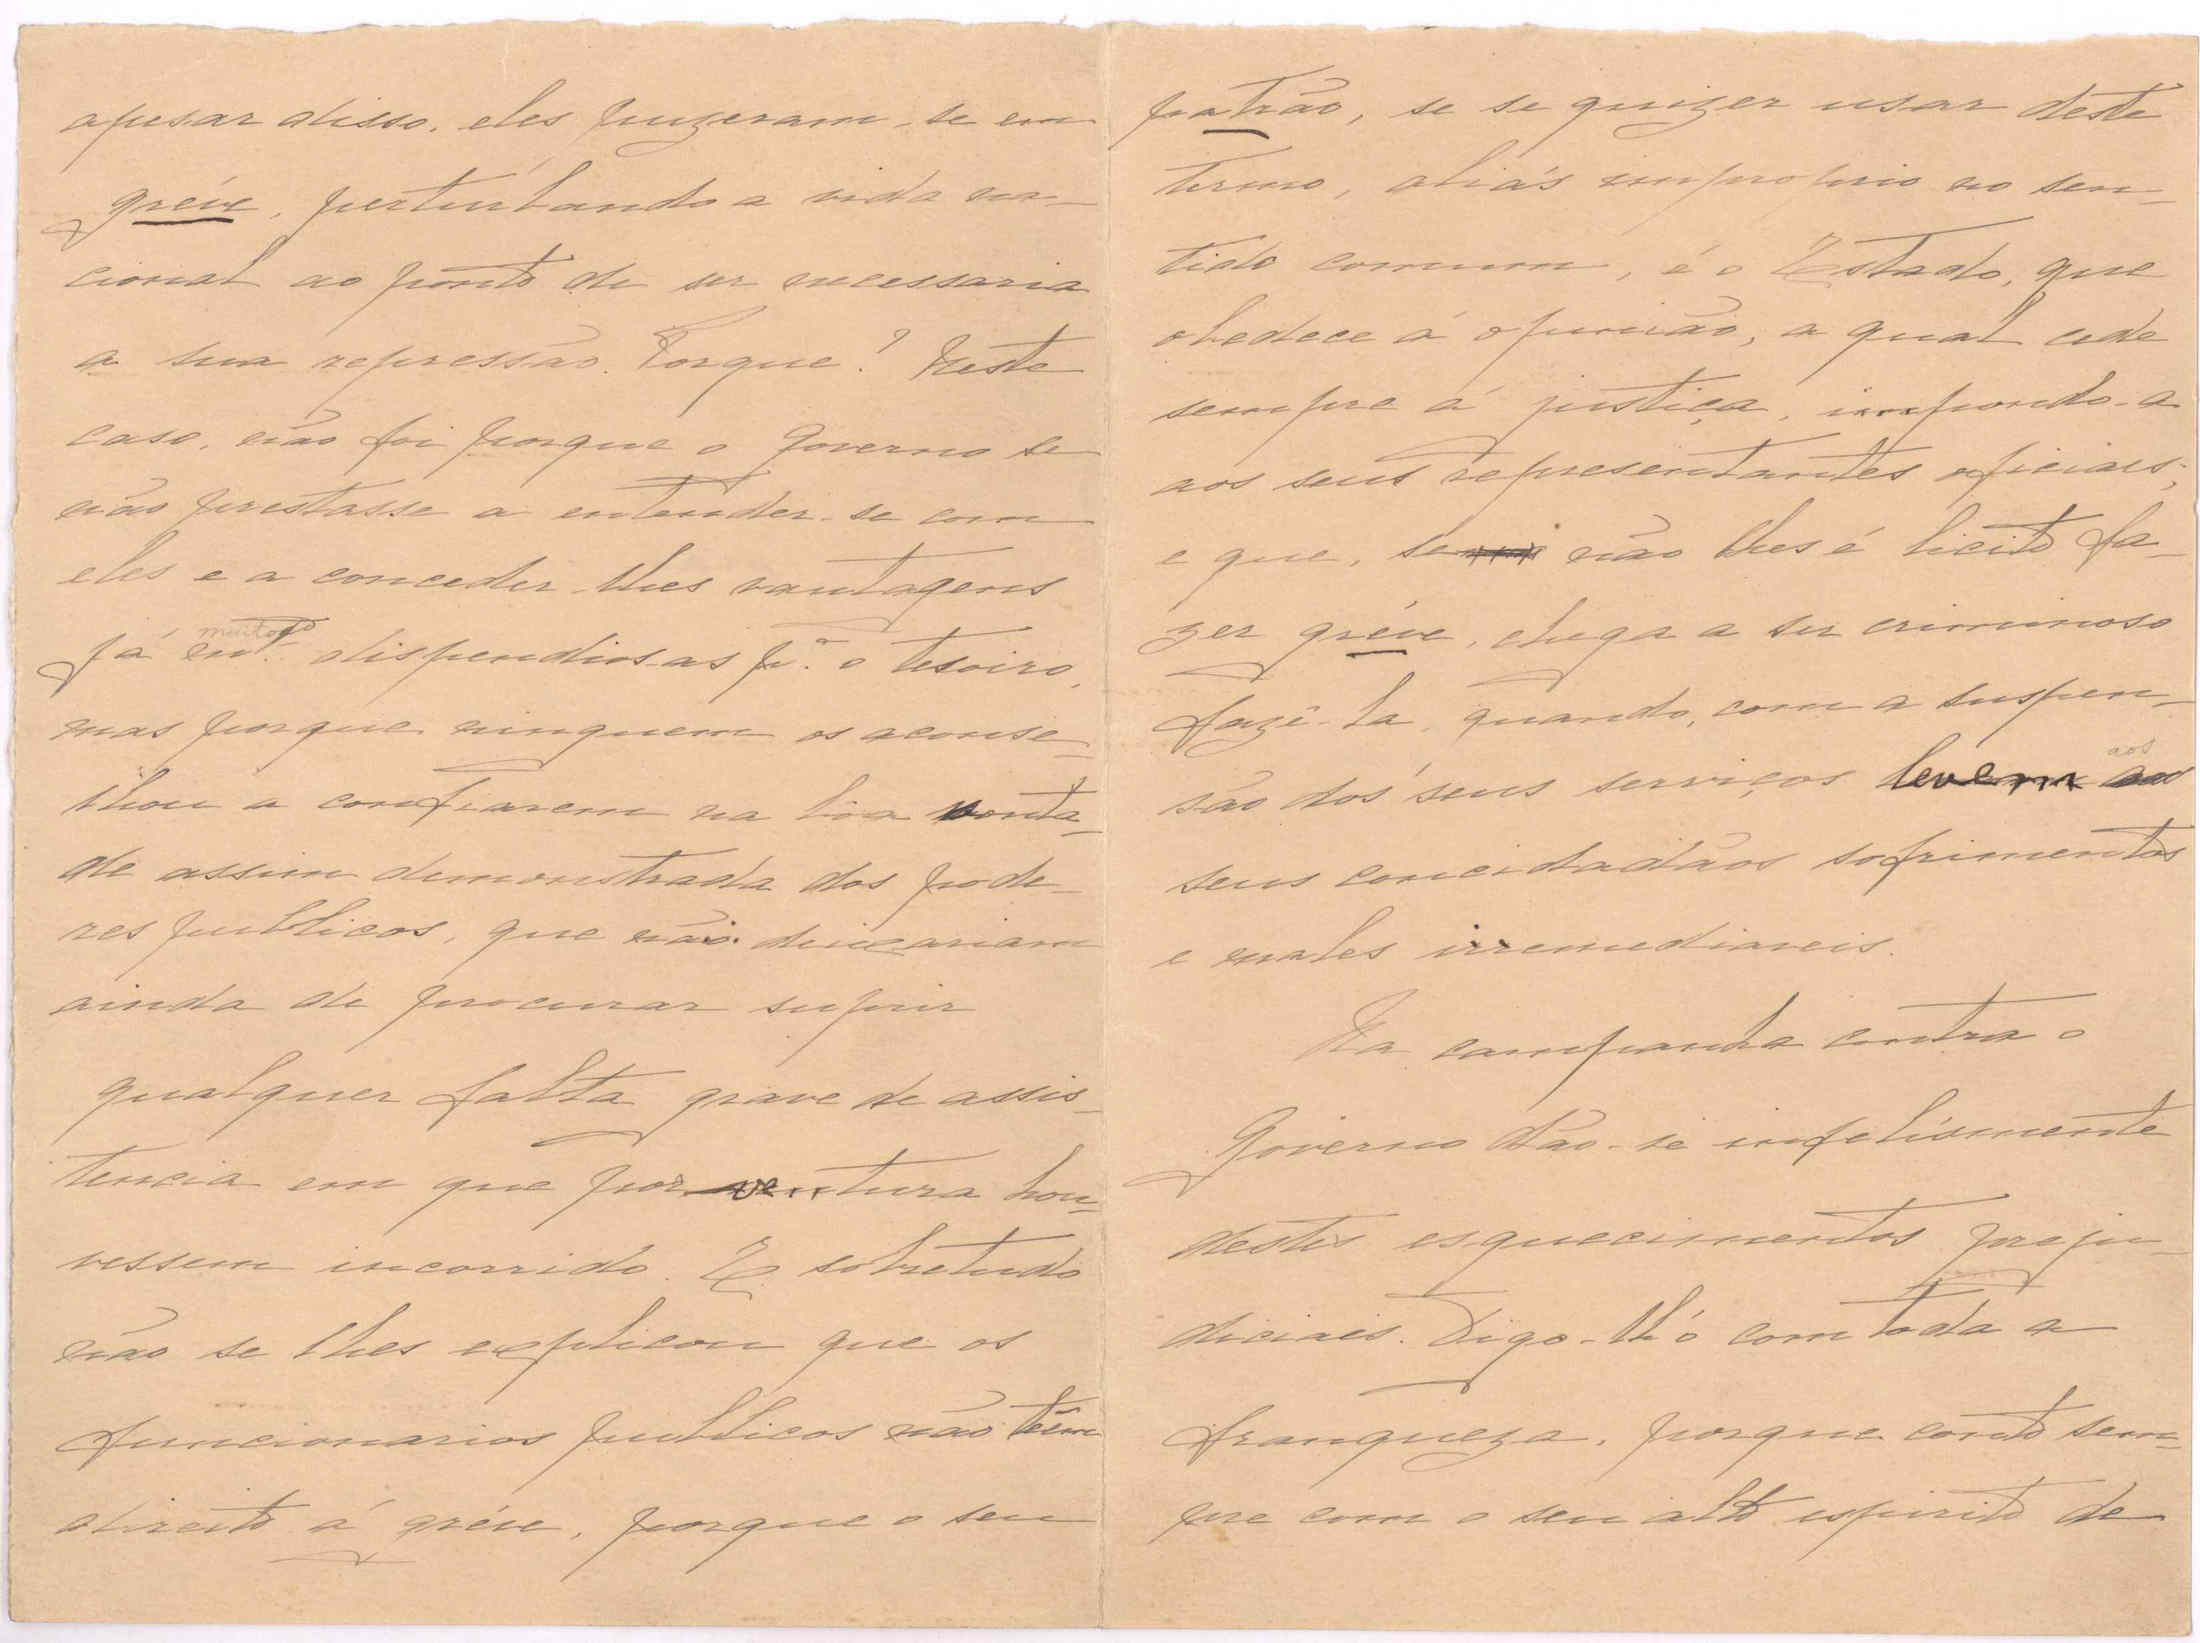 apesar disso, eles puzeram-se em
gréve, perturbando a vida na-
cional ao ponto de ser necessaria
a sua repressão. Porque? Neste
caso, não foi porque o Governo se
não prestasse a entender-se com
eles e a conceder-lhes vantagens
muito
já dispendiosas p.ª o tesoiro,
mas porque ninguem os aconse-
lhou a confiarem na boa vonta-
de assim demonstrada dos pode-
res publicos, que não deixariam
ainda de procurar suprir
qualquer falta grave de assis-
tencia em que porventura hou-
vessem incorrido. E sobretudo
não se lhes explicou que os
funcionarios publicos não têem
direito á gréve, porque o seu
patrão, se se quizer usar deste
termo, aliás improprio no sen-
tido comum, é o Estado, que
obedece á opinião, a qual cede
sempre á justiça, impondo-a
aos seus representantes oficiais;
e que, se não lhes é licito fa-
zer gréve, chega a ser criminoso
fazê-la, quando, com a suspen-
aos
são dos seus serviços levem aos
seus concidadãos sofrimentos
e males irremediaveis.
Na campanha contra o
Governo dão-se infelizmente
destes esquecimentos preju-
diciais. Digo-lh'o com toda a
franqueza, porque conto sem-
pre com o seu alto espirito de